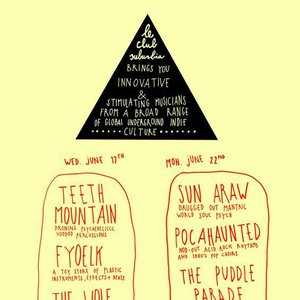 le
club
suburbia
BRINGS YOU
INNOVATIVE
&
STIMULATING MUSICIANS
FROM A BROAD RANGE
OF GLOBAL UNDERGROUND INDIE
CULTURE
WED. JUNE 17TH
TEETH
MOUNTAIN
DRONING PSYCHEDELICCC
VOODOO PERCUSSIONS
FYOELK
A TOY STORE OF PLASTIC
INSTRUMENTS, EFFECTS + BEATS
THE
MON. JUNE 22ND
SUN ARAW
DRUGGED OUT MANTRIC
WORLD SOUL PSYCH
POCAHAUNTED
NOD-OUT ACID ROCK RHYTHMS
AND 1960'S POP CHOIRS
THE PUDDLE
PARADE